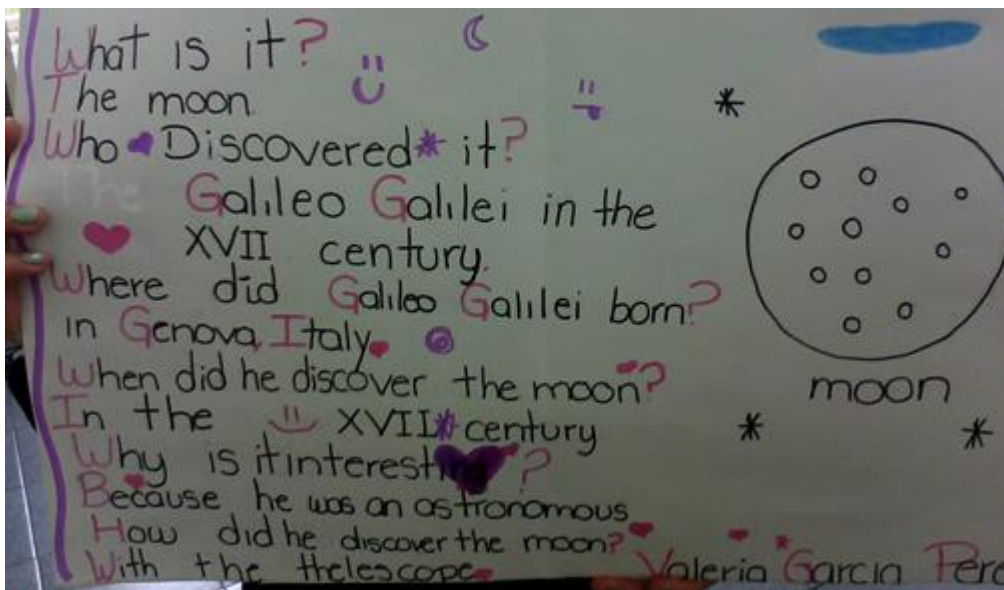 What is it?
The moon.
Who Discovered it?
The Galileo Galilei in the
XVII century.
Where did Galileo Galilei born?
in Genova, Italy.
When did he discover the moon?
In the XVII century
Why is it interesting?
Because he was an astronomous
How did he discover the moon?
With the thelescope
moon
Valeria Garcia